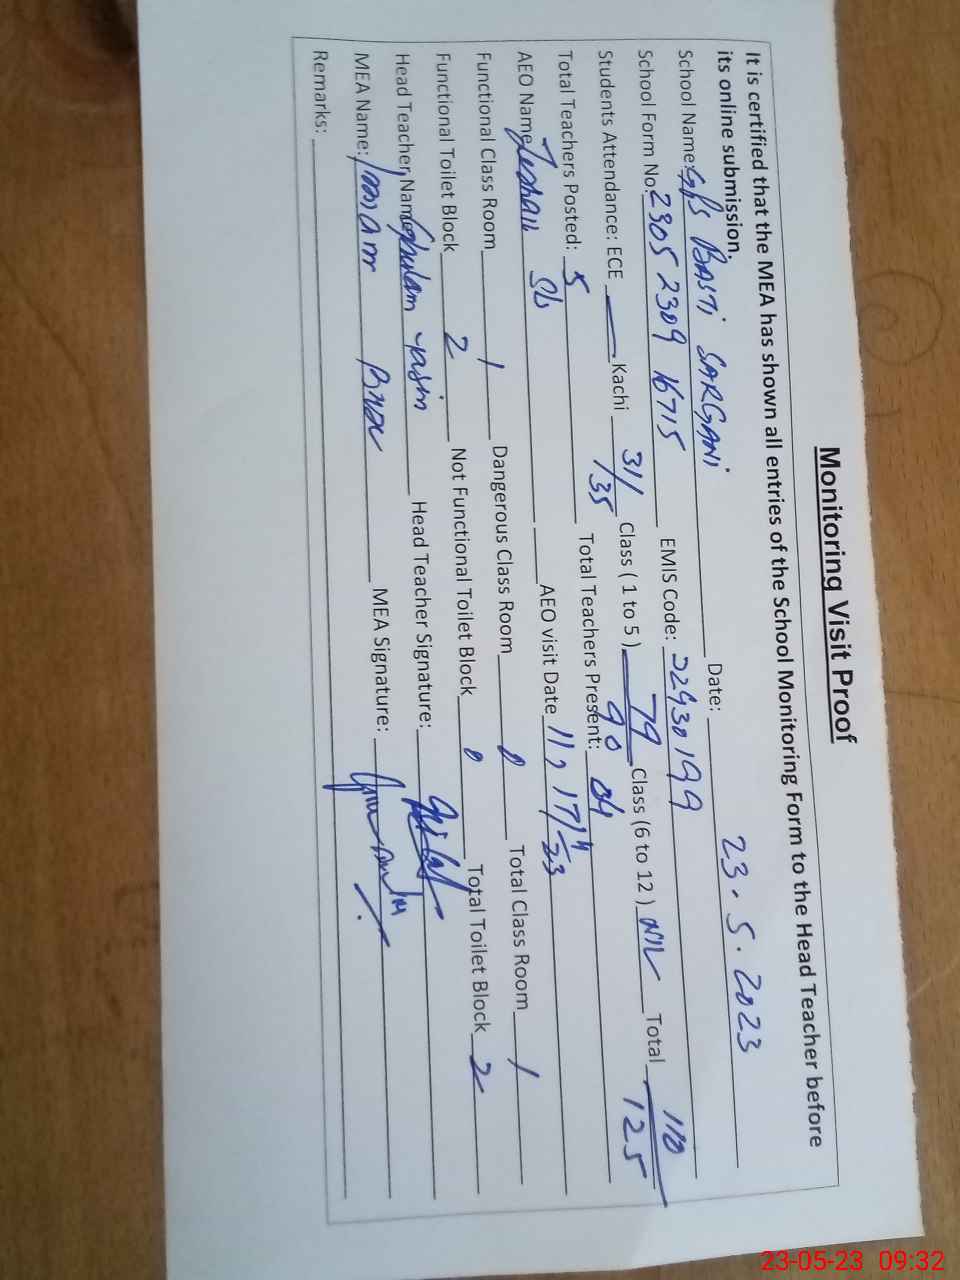 Monitoring Visit Proof
It is certified that the MEA has shown all entries of the School Monitoring Form to the Head Teacher before
its online submission.
Date: 23.5.2023
School Name: G/PS BASTI SARGANI
School Form No. 2305 2309 16715 EMIS Code:
Students Attendance: ECE — Kachi 31/35 Class ( 1 to 5 ) 79/90 Class (6 to 12 ) NIL Total 110/125
Total Teachers Posted: 5 Total Teachers Present: 04
AEO Name Zeshan Sb AEO visit Date 11, 17/4/23
Functional Class Room 1 Dangerous Class Room 0 Total Class Room 1
Functional Toilet Block 2 Not Functional Toilet Block 0 Total Toilet Block 2
Head Teacher Name Ghulam yasin Head Teacher Signature:
MEA Name: MEA Signature:
Remarks:
23-05-23 09:32